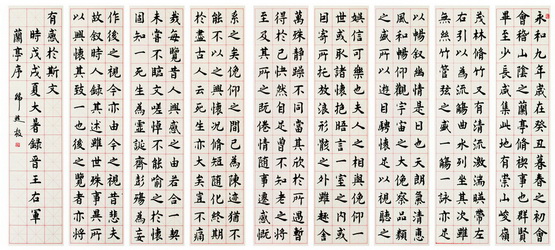 永和九年歲在癸丑暮春之初會
會稽山陰之蘭亭脩禊事也群賢
畢至少長咸集此地有崇山峻嶺
茂林脩竹又有清流激湍映帶左
右引以為流觴曲水列坐其次雖
無絲竹管弦之盛一觴一詠亦足
以暢敘幽情是日也天朗氣清惠
風和暢仰觀宇宙之大俯察品類
之盛所以遊目騁懷足以極視聽之
娛信可樂也夫人之相與俯仰一
世或取諸懷抱悟言一室之內或
因寄所託放浪形骸之外雖趣舍
萬殊靜躁不同當其欣於所遇暫
得於己快然自足曾不知老之將
至及其所之既倦情隨事遷感慨
系之矣俛仰之間已為陳迹猶不
能不以之興懷況脩短隨化終期
於盡古人云死生亦大矣豈不痛
哉每覽昔人興感之由若合一契
未嘗不臨文嗟悼不能喻之於懷
固知一死生為虛誕齊彭殤為妄
作後之視今亦由今之視昔悲夫
故敘時人錄其述雖世殊事異所
以興懷其致一也後之覽者亦將
有感於斯文
時戊戌夏大暑錄晉王右軍
蘭亭序